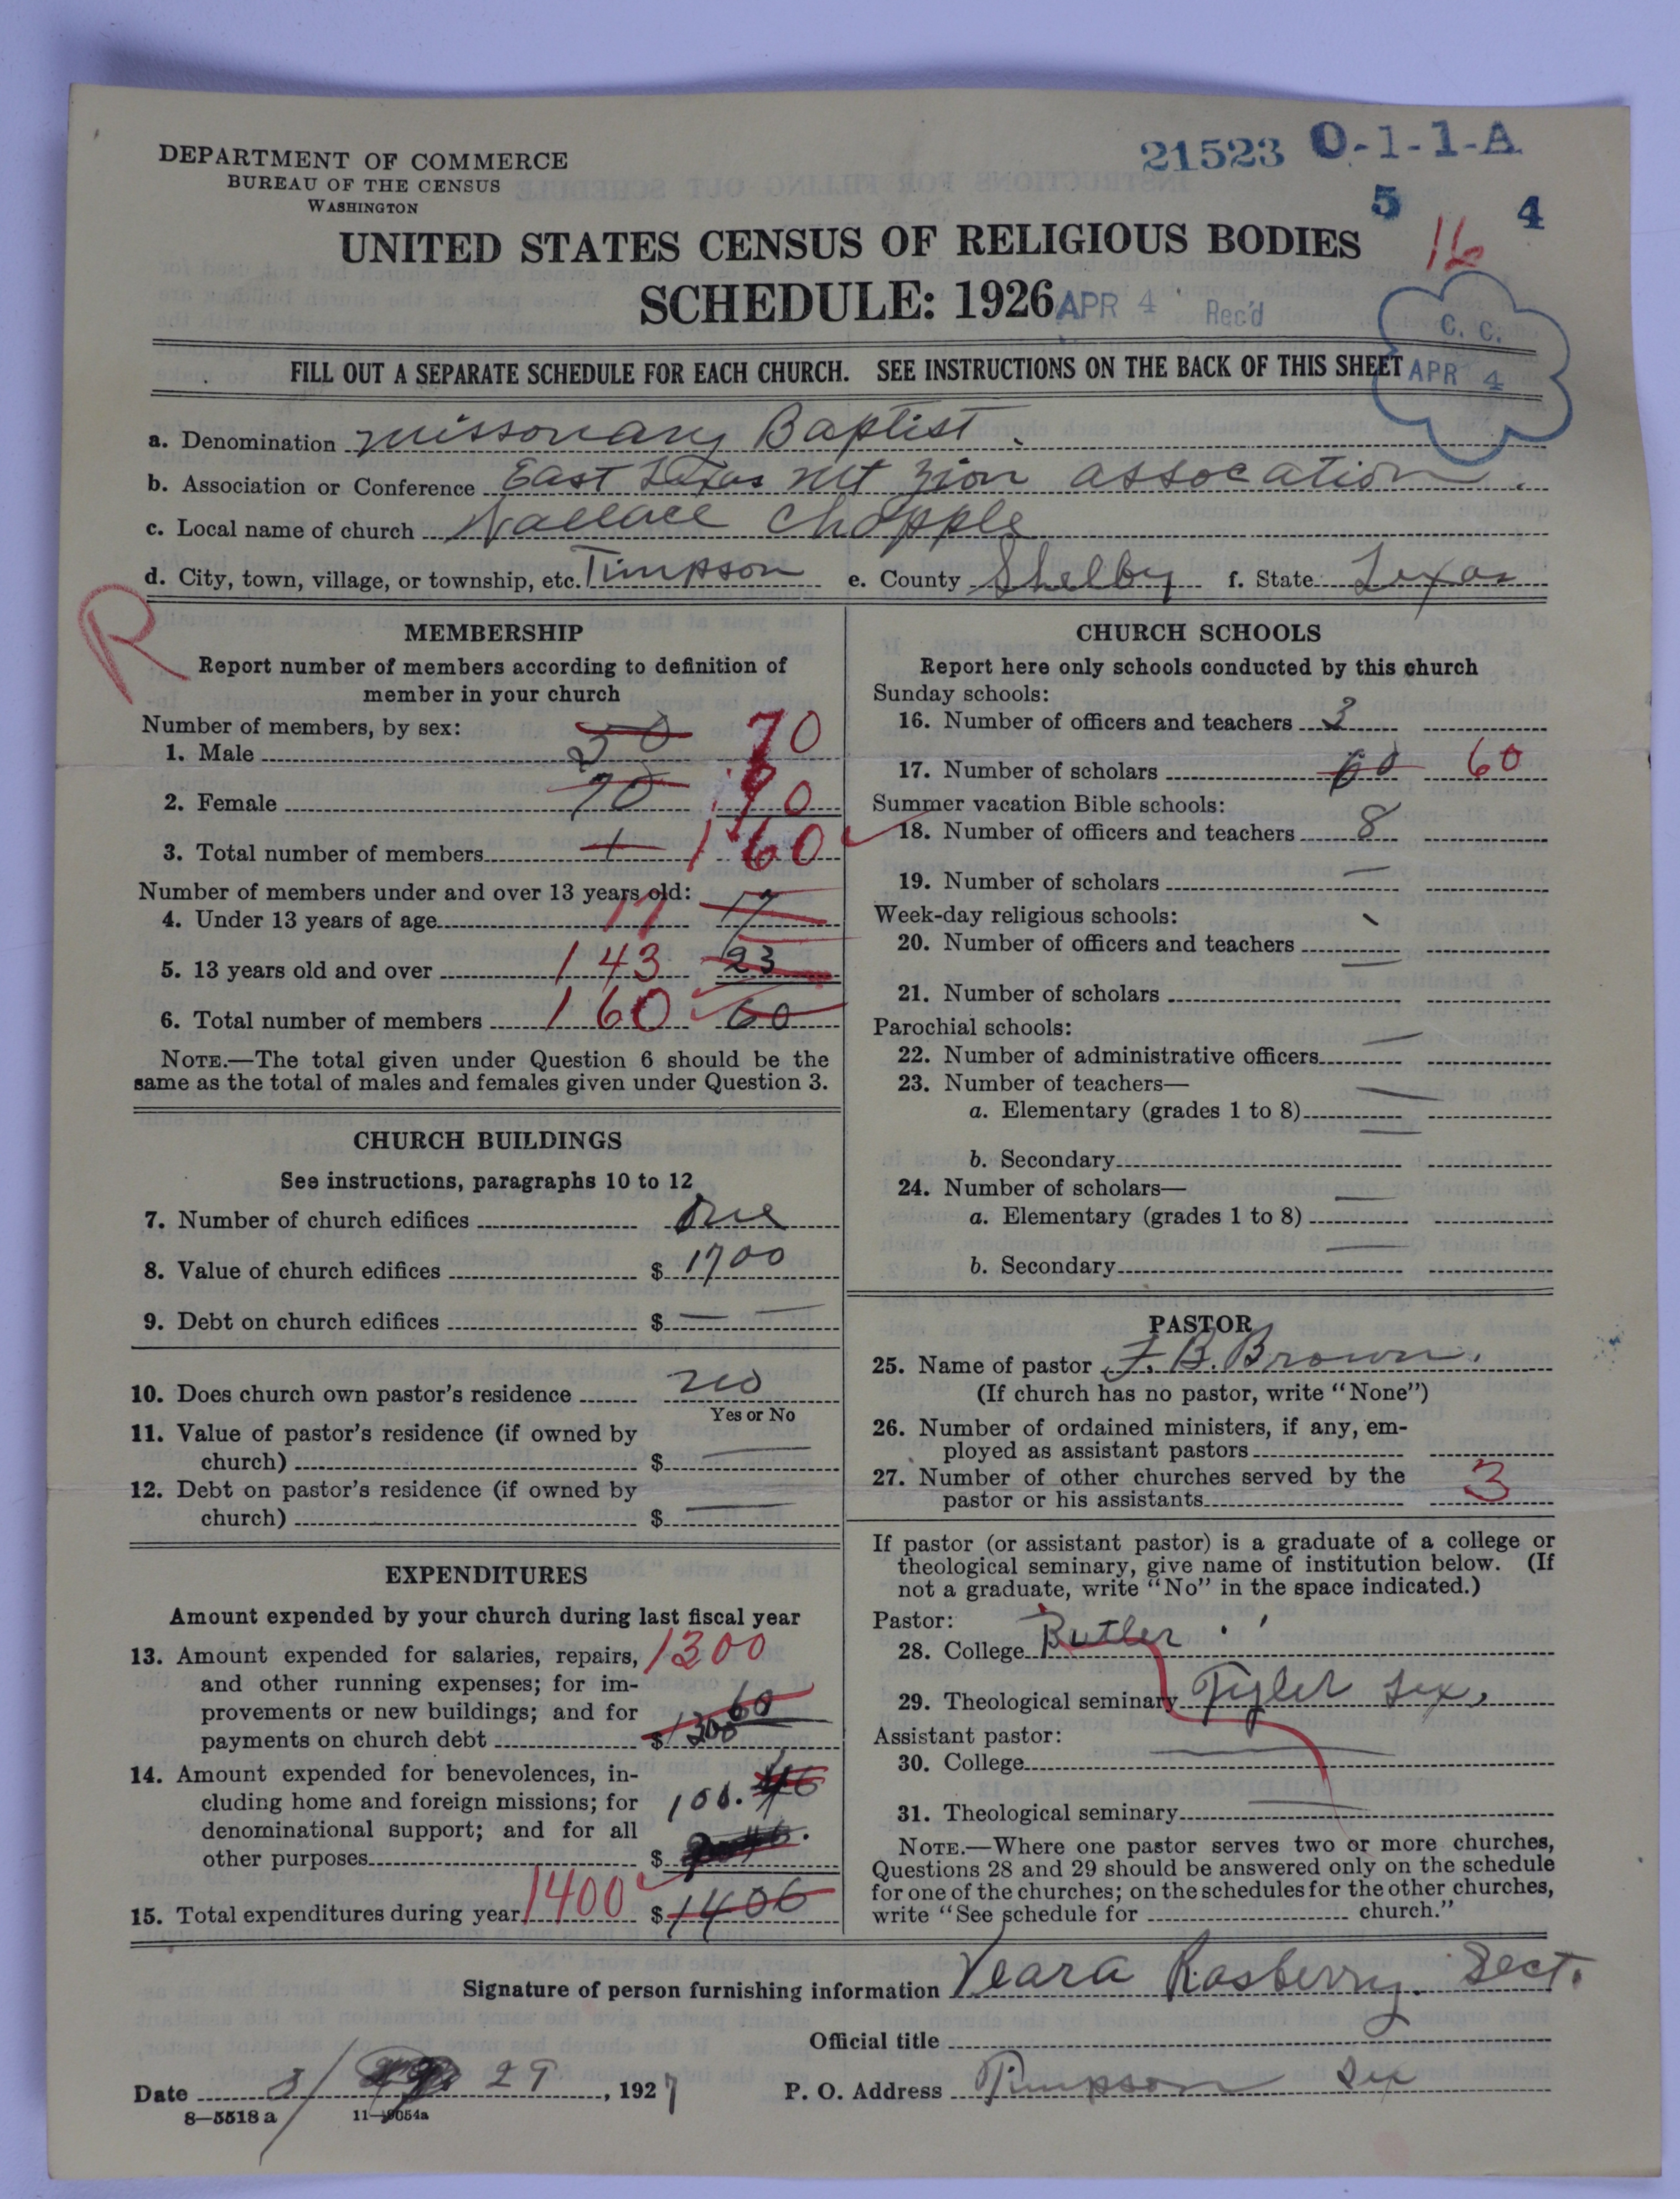 DEPARTMENT OF COMMERCE
BUREAU OF THE CENSUS
WASHINGTON
21523 0-1-1-A
5 4
16
UNITED STATES CENSUS OF RELIGIOUS BODIES
SCHEDULE: 1926
APR 4 Rec'd
C. C.
APR 4
FILL OUT A SEPARATE SCHEDULE FOR EACH CHURCH. SEE INSTRUCTIONS ON THE BACK OF THIS SHEET
a. Denomination missonary Baptist.
b. Association or Conference East Texas Mt Zion assocation.
c. Local name of church Wallace Chapple
d. City, town, village, or township, etc. Timpson e. County Shelby f. State Texas
R
MEMBERSHIP
Report number of members according to definition of
member in your church
Number of members, by sex:
1. Male 50 70
2. Female 70 90
3. Total number of members 1 160
Number of members under and over 13 years old:
4. Under 13 years of age 17 17
5. 13 years old and over 143 23
6. Total number of members 160 60
NOTE.—The total given under Question 6 should be the
same as the total of males and females given under Question 3.
CHURCH BUILDINGS
See instructions, paragraphs 10 to 12
7. Number of church edifices One
8. Value of church edifices $ 1700
9. Debt on church edifices $ — —
10. Does church own pastor's residence no
Yes or No
11. Value of pastor's residence (if owned by
church) $ —
12. Debt on pastor's residence (if owned by
church) $ —
EXPENDITURES
Amount expended by your church during last fiscal year
13. Amount expended for salaries, repairs, 1300
and other running expenses; for im-
provements or new buildings; and for 60
payments on church debt $ 1300
14. Amount expended for benevolences, in-
cluding home and foreign missions; for 100.
denominational support; and for all
other purposes $
15. Total expenditures during year 1400 $ 1406
CHURCH SCHOOLS
Report here only schools conducted by this church
Sunday schools:
16. Number of officers and teachers 3
17. Number of scholars 60 60
Summer vacation Bible schools:
18. Number of officers and teachers 8
19. Number of scholars —
Week-day religious schools:
20. Number of officers and teachers
21. Number of scholars —
Parochial schools:
22. Number of administrative officers —
23. Number of teachers—
a. Elementary (grades 1 to 8) —
b. Secondary —
24. Number of scholars—
a. Elementary (grades 1 to 8) —
b. Secondary —
PASTOR
25. Name of pastor F. B. Brown.
(If church has no pastor, write "None")
26. Number of ordained ministers, if any, em-
ployed as assistant pastors
27. Number of other churches served by the
pastor or his assistants 3
If pastor (or assistant pastor) is a graduate of a college or
theological seminary, give name of institution below. (If
not a graduate, write "No" in the space indicated.)
Pastor:
28. College Butler.
29. Theological seminary Tyler Tex,
Assistant pastor:
30. College —
31. Theological seminary —
NOTE.—Where one pastor serves two or more churches,
Questions 28 and 29 should be answered only on the schedule
for one of the churches; on the schedules for the other churches,
write "See schedule for church."
Signature of person furnishing information Veara Rasberry. Sect.
Official title
Date 3/ 29, 1927 P. O. Address Timpson Tex
8—5518 a 11—9054a